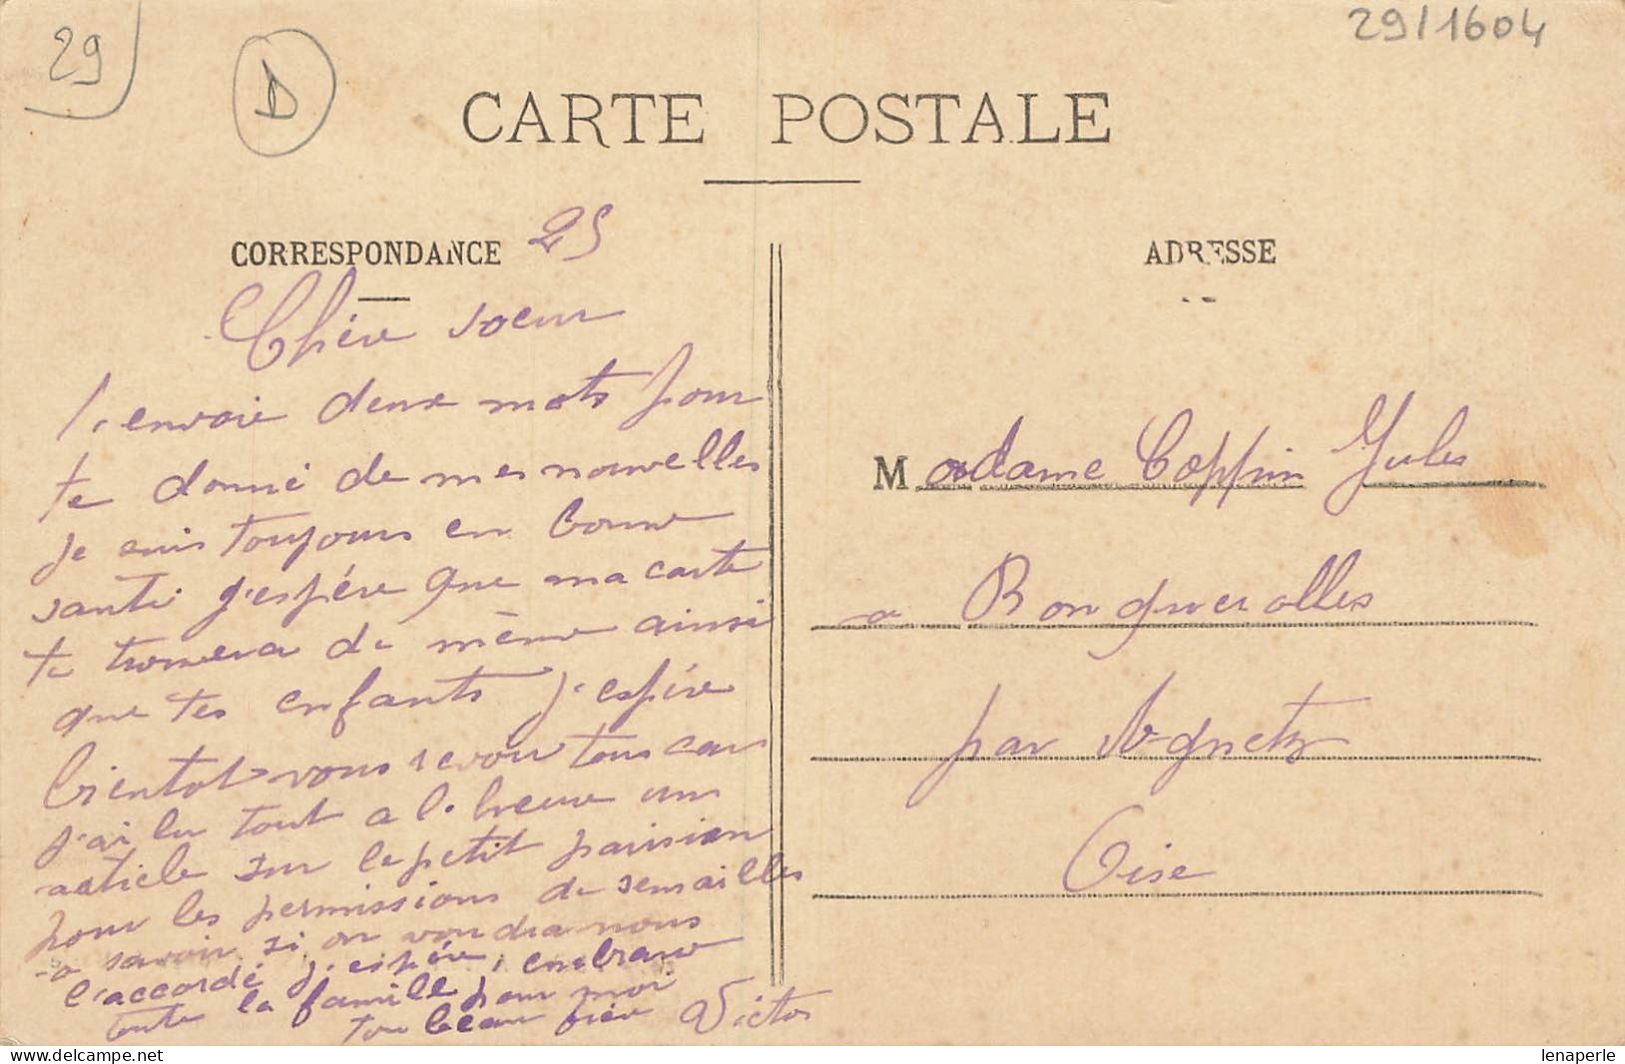 29
D
29/1604
CARTE POSTALE
CORRESPONDANCE 25
ADRESSE
Chère soeur
t'envoie deux mots pour
te donné de mes nouvelles
je suis toujours en bonne
santé j'espère que ma carte
te trouvera de même ainsi
que tes enfants j'espère
bientot vous revoir tous car
j'ai lu tout a l'heure un
article sur le petit parisien
pour les permissions de semailles
a savoir si on voudra nous
l'accordé j'espère, embrasse
toute la famille pour moi
ton beau frère Victor
Madame Coppin Jules
a Ronquerolles
par Agnetz
Oise
lenaperle